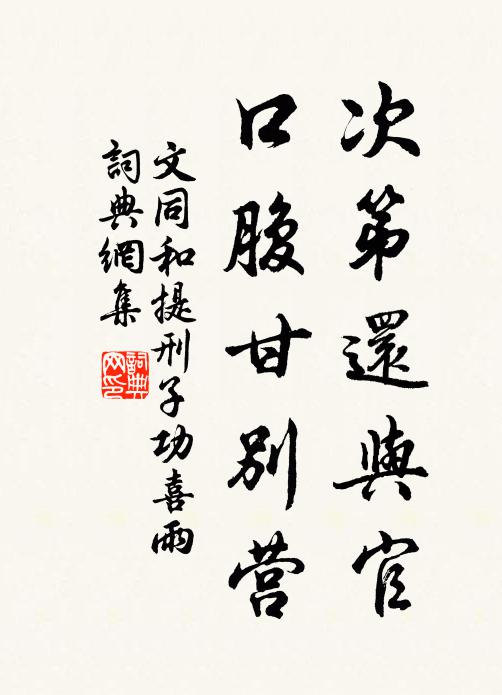 次第還與官
口腹甘別营
文同和提刑子功喜雨
詞典網集
詞典网印